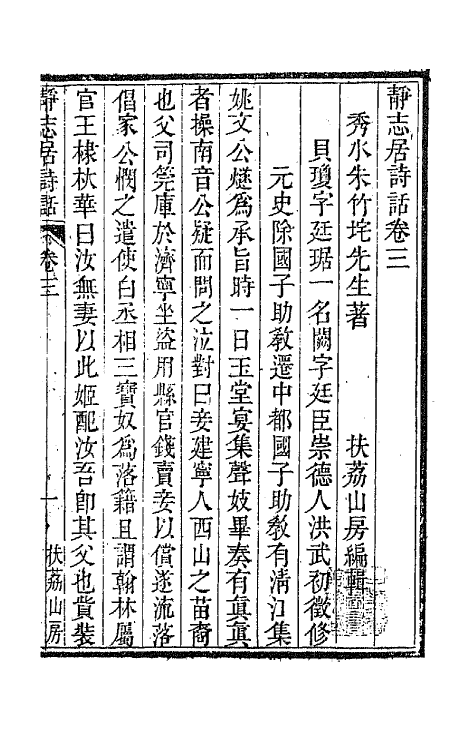 靜志居詩話卷三
秀水朱竹垞先生著　扶荔山房編輯
貝瓊字廷琚一名闕字廷臣崇德人洪武初徵修
元史除國子助敎遷中都國子助敎有淸江集
姚文公燧爲承旨時一日玉堂宴集聲妓畢奏有眞眞
者操南音公疑而問之泣對曰妾建寧人西山之苗裔
也父司筦庫於濟寧坐盜用縣官錢賣妾以償遂流落
倡家公憫之遣使白丞相三寶奴爲落籍且謂翰林屬
官王棣杕華曰汝無妻以此姬配汝吾卽其父也貲裝
靜志居詩話　卷三　一　扶荔山房